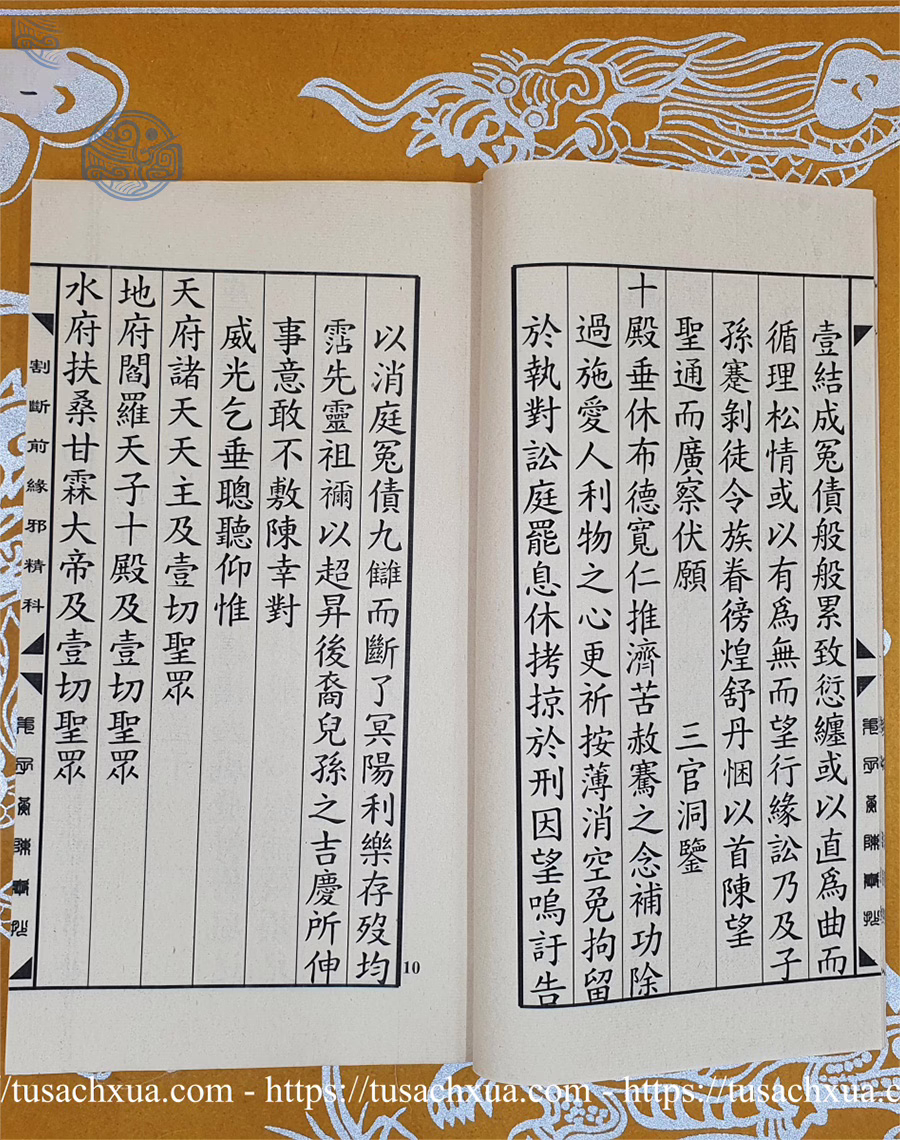 壹結成冤債般般累致愆纏或以直爲曲而
循理松情或以有爲無而望行緣訟乃及子
孫蹇剝徒令族眷徬煌舒丹悃以首陳望
聖通而廣察伏願 三官洞鑒
十殿垂休布德寬仁推濟苦赦騫之念補功除
過施愛人利物之心更祈按薄消空免拘留
於執對訟庭罷息休拷掠於刑因望嗚訏告
以消庭冤債九讎而斷了冥陽利樂存歿均
霑先靈祖禰以超昇後裔兒孫之吉慶所伸
事意敢不敷陳幸對
威光乞垂聰聽仰惟
天府諸天天主及壹切聖眾
地府閻羅天子十殿及壹切聖眾
水府扶桑甘霖大帝及壹切聖眾
割斷前緣邪精科
10
//tusachxua.com - https://tusachxua.com - https://tusachxua.co